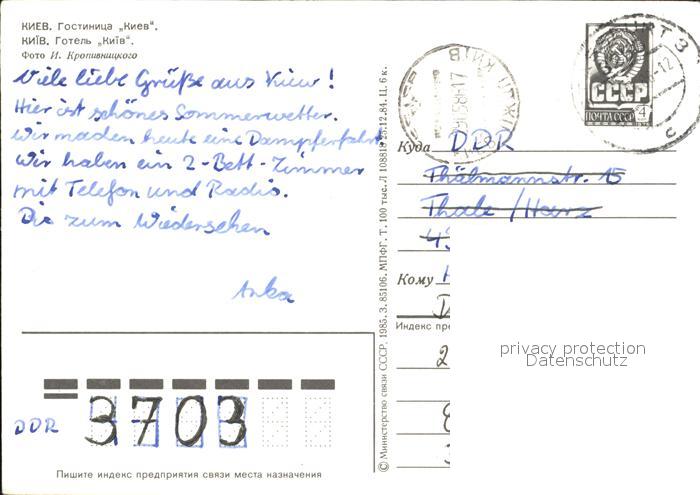 КИЕВ. Гостиница „Киев".
КИЇВ. Готель „Київ".
Фото И. Кропивницкого
Viele liebe Grüße aus Kiew!
Hier ist schönes Sommerwetter.
Wir machen heute eine Dampferfahrt
Wir haben ein 2-Bett-Zimmer
mit Telefon und Radio.
Bis zum Wiedersehen
Anka
DDR 3703
Пишите индекс предприятия связи места назначения
© Министерство связи СССР. 1985. З. 85106. МПФГ. Т. 100 тыс. Л 108818 25.12.84. Ц. 6 к.
СССР
ПОЧТА СССР 4
Куда DDR
Thälmannstr. 15
Thale / Harz
Кому
Индекс пре
privacy protection
Datenschutz